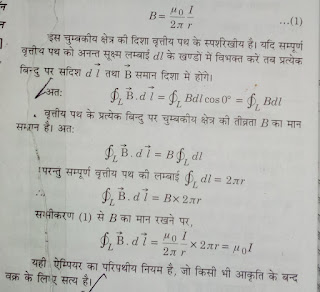 B = μ₀/2π I/r ...(1)
इस चुम्बकीय क्षेत्र की दिशा वृत्तीय पथ के स्पर्शरेखीय है। यदि सम्पूर्ण
वृत्तीय पथ को अनन्त सूक्ष्म लम्बाई dl के खण्डों में विभक्त करे तब प्रत्येक
बिन्दु पर सदिश d l⃗ तथा B⃗ समान दिशा में होंगे।
अतः ∮_L B⃗. d l⃗ = ∮_L Bdl cos 0° = ∮_L Bdl
वृत्तीय पथ के प्रत्येक बिन्दु पर चुम्बकीय क्षेत्र की तीव्रता B का मान
समान है। अतः
∮_L B⃗. d l⃗ = B ∮_L dl
परन्तु सम्पूर्ण वृत्तीय पथ की लम्बाई ∮_L dl = 2πr
∴ ∮_L B⃗. d l⃗ = B × 2πr
समीकरण (1) से B का मान रखने पर,
∮_L B⃗. d l⃗ = μ₀/2π I/r × 2πr = μ₀I
यही ऐम्पियर का परिपथीय नियम है, जो किसी भी आकृति के बन्द
वक्र के लिए सत्य है।